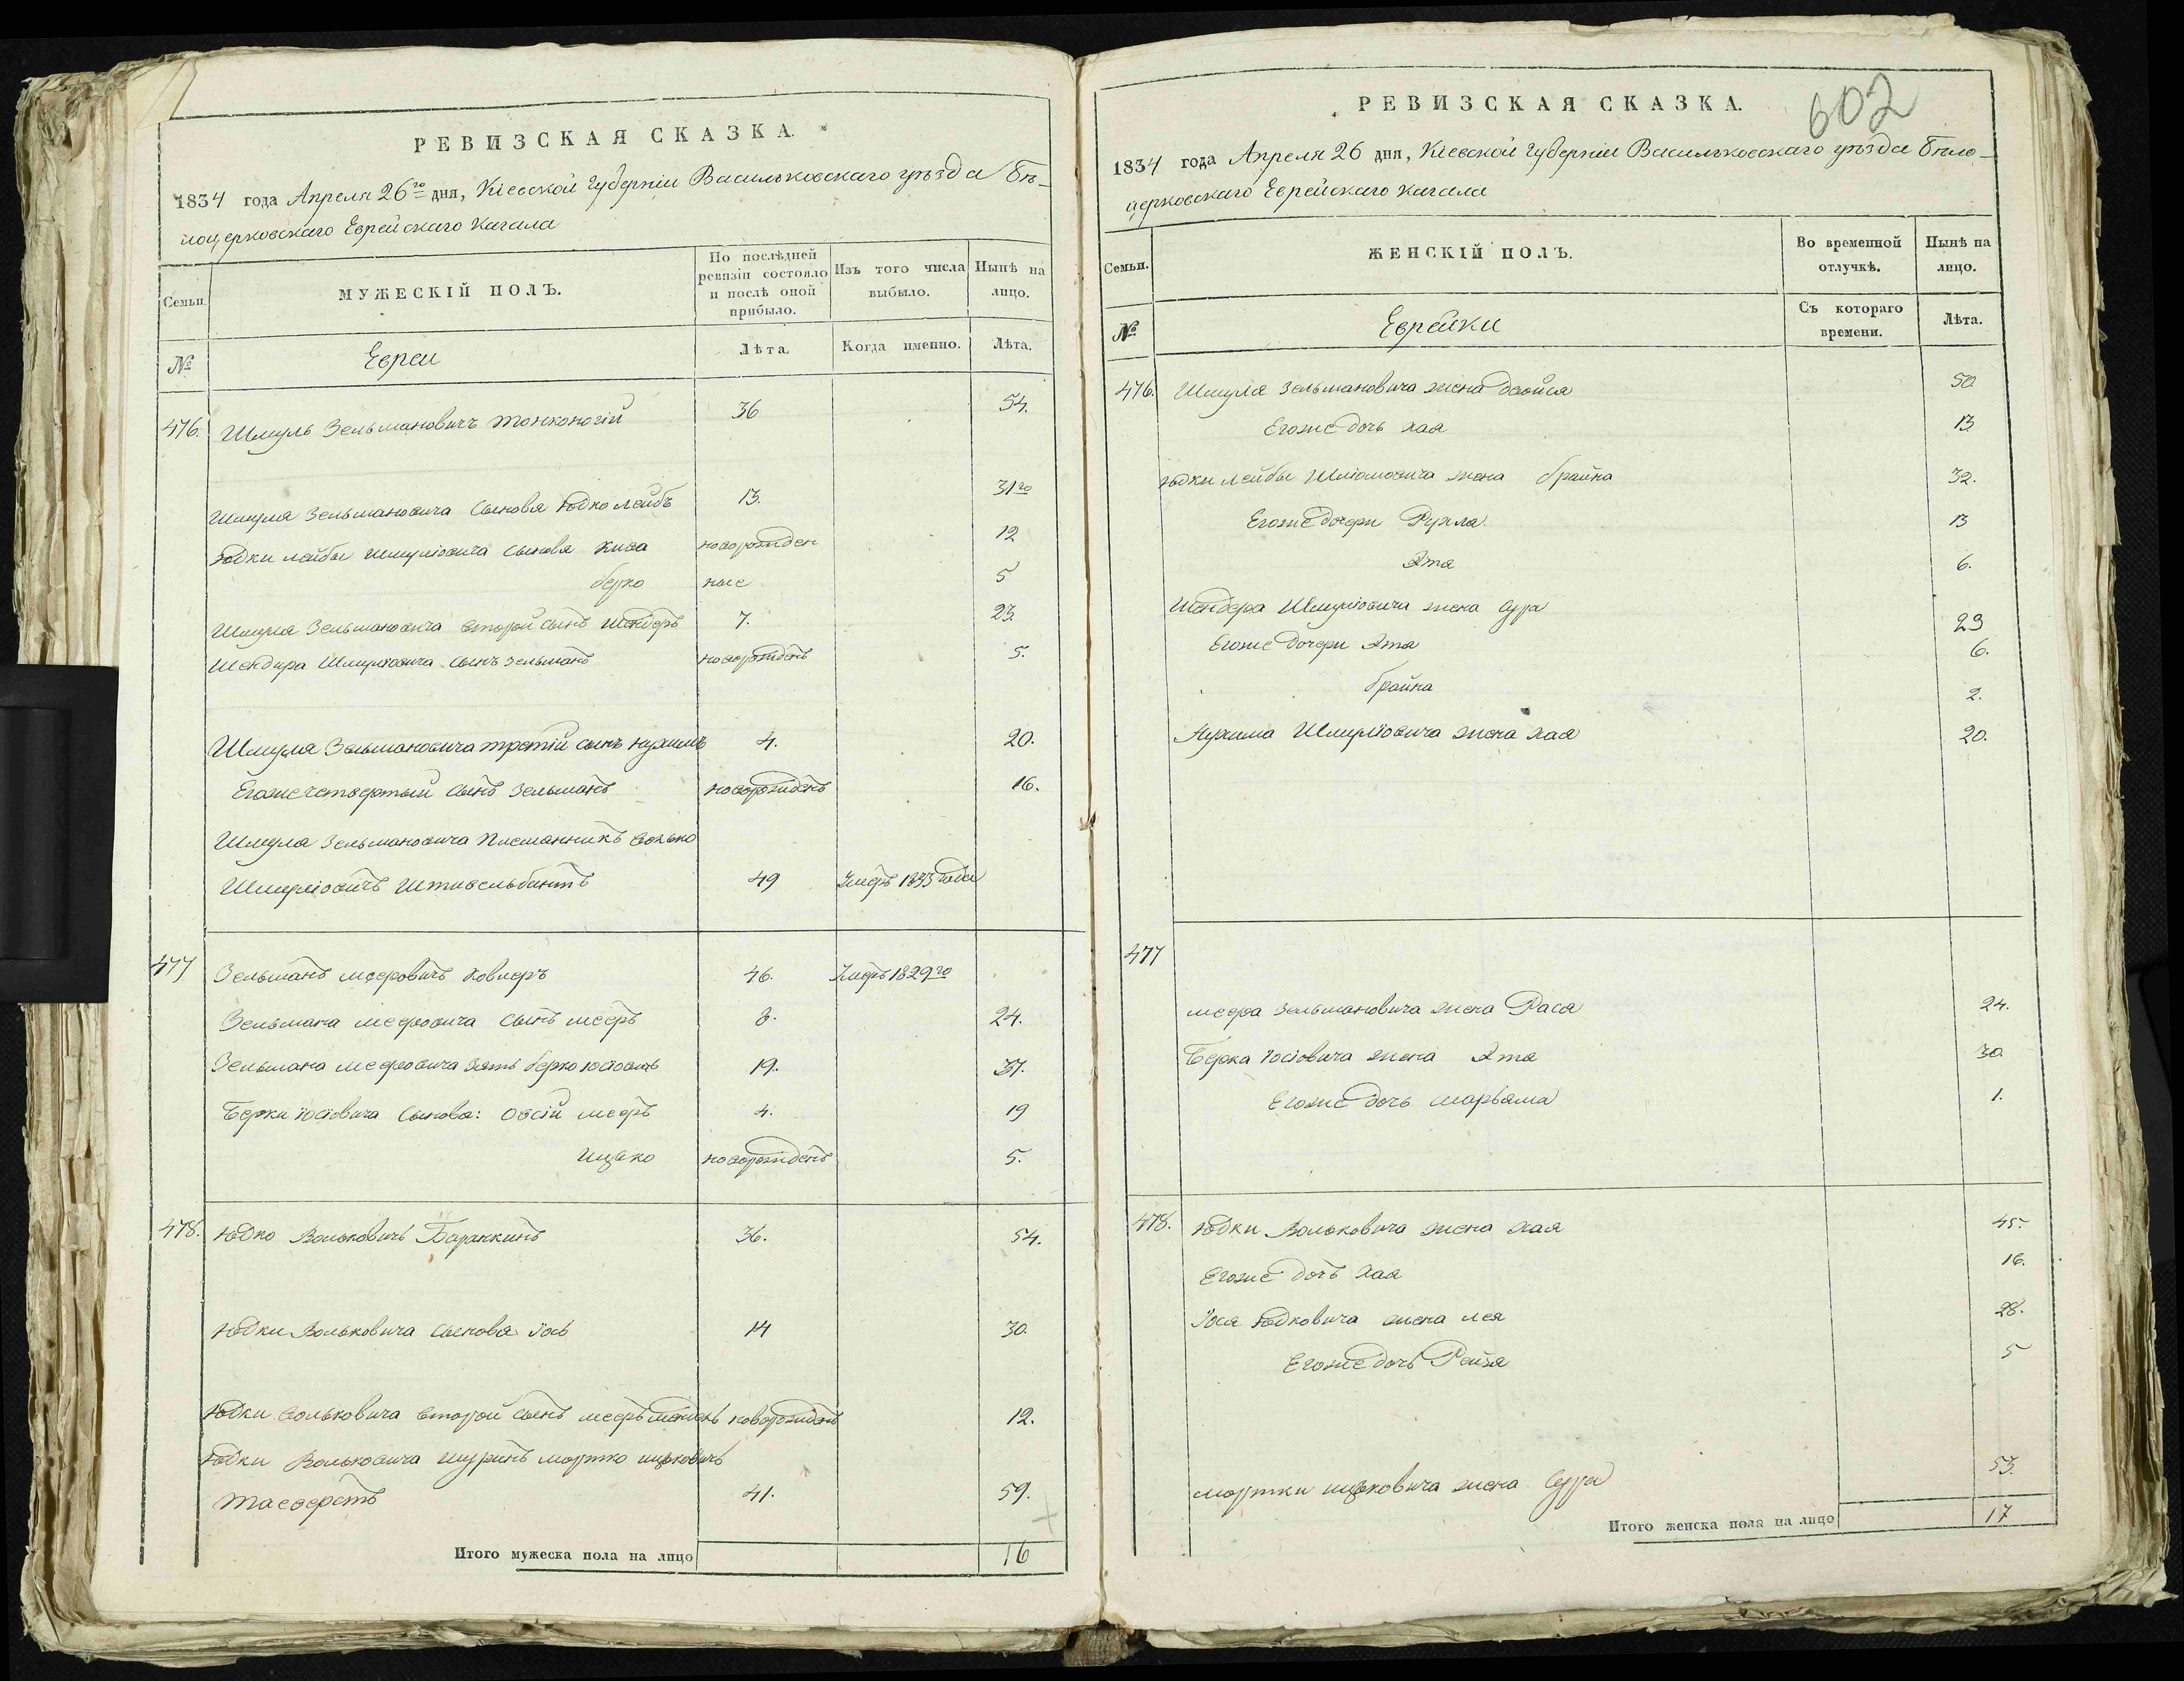 РЕВИЗСКАЯ СКАЗКА.
1834 года Апреля 26го дня, Кіевской Губерніи Васильковскаго уѣзда Бѣ-
лоцерковскаго Еврейскаго Кагала
Семьи. МУЖЕСКІЙ ПОЛЪ. По послѣдней ревизіи состояло и послѣ оной прибыло. Изъ того числа выбыло. Нынѣ на лицо.
№ Евреи Лѣта. Когда именно. Лѣта.
476. Шмуль Зельмановичъ Тонконогій 36 54.
Шмуля Зельмановича Сыновя Юдко Лейбъ 13. 31го
Юдки Лейбы Шмуліовича Сыновя Кива новорожден 12
берко ные 5
Шмуля Зельмановича второй Сынъ Шендеръ 7. 23.
Шендира Шмуліовича Сынъ Зельманъ новорожденъ 5.
Шмуля Зельмановича третій сынъ Нухимъ 4. 20.
Егоже четвертый Сынъ Зельманъ новорожденъ 16.
Шмуля Зельмановича Племянникъ Волько
Шмуліовичъ Штивельбантъ 49 Умеръ 1833 года
477 Зельманъ Мееровичъ Ховперъ 46. Умеръ 1829го
Зельмана Мееровича Сынъ Мееръ 8. 24.
Зельмана Мееровича Зять берко Юсіовичъ 19. 37.
Берки Юсіовича Сыновя: Овсій Мееръ 4. 19
Ицько новорожденъ 5.
478. Юдко Вольковичъ Баранкинъ 36. 54.
Юдки Вольковича Сыновя Іось 14 30.
Юдки Вольковича второй Сынъ Мееръ новорожденъ 12.
Юдки Вольковича Шуринъ Мортко Ицковичъ
Таеверстъ 41. 59.
Итого мужеска пола на лицо 16
602
РЕВИЗСКАЯ СКАЗКА.
1834 года Апреля 26 дня, Кіевской Губерніи Васильковскаго уѣзда Бѣло-
церковскаго Еврейскаго Кагала
Семьи. ЖЕНСКІЙ ПОЛЪ. Во временной отлучкѣ. Нынѣ на лицо.
№ Еврейки Съ котораго времени. Лѣта.
476. Шмуля Зельмановича жена Двойся 50.
Егоже дочь Хая 13.
Юдки Лейбы Шміоловича жена брайна 32.
Егоже дочери Рухля. 13
Эта 6.
Шендера Шмуліовича жена Сура 23
Егоже дочери Эта 6.
брайна 2.
Нухима Шмуліовича жена Хая 20.
477
Меера Зельмановича жена Рася 24.
Берка Юсіовича жена Эта 30.
Егоже дочь Марьяма 1.
478. Юдки Вольковича жена Хая 45.
Егоже дочь Хая 16.
Іося Юдковича жена Лея 28.
Егоже дочь Рейзя 5
Мортки Ицьковича жена Сура 53.
Итого женска пола на лицо 17